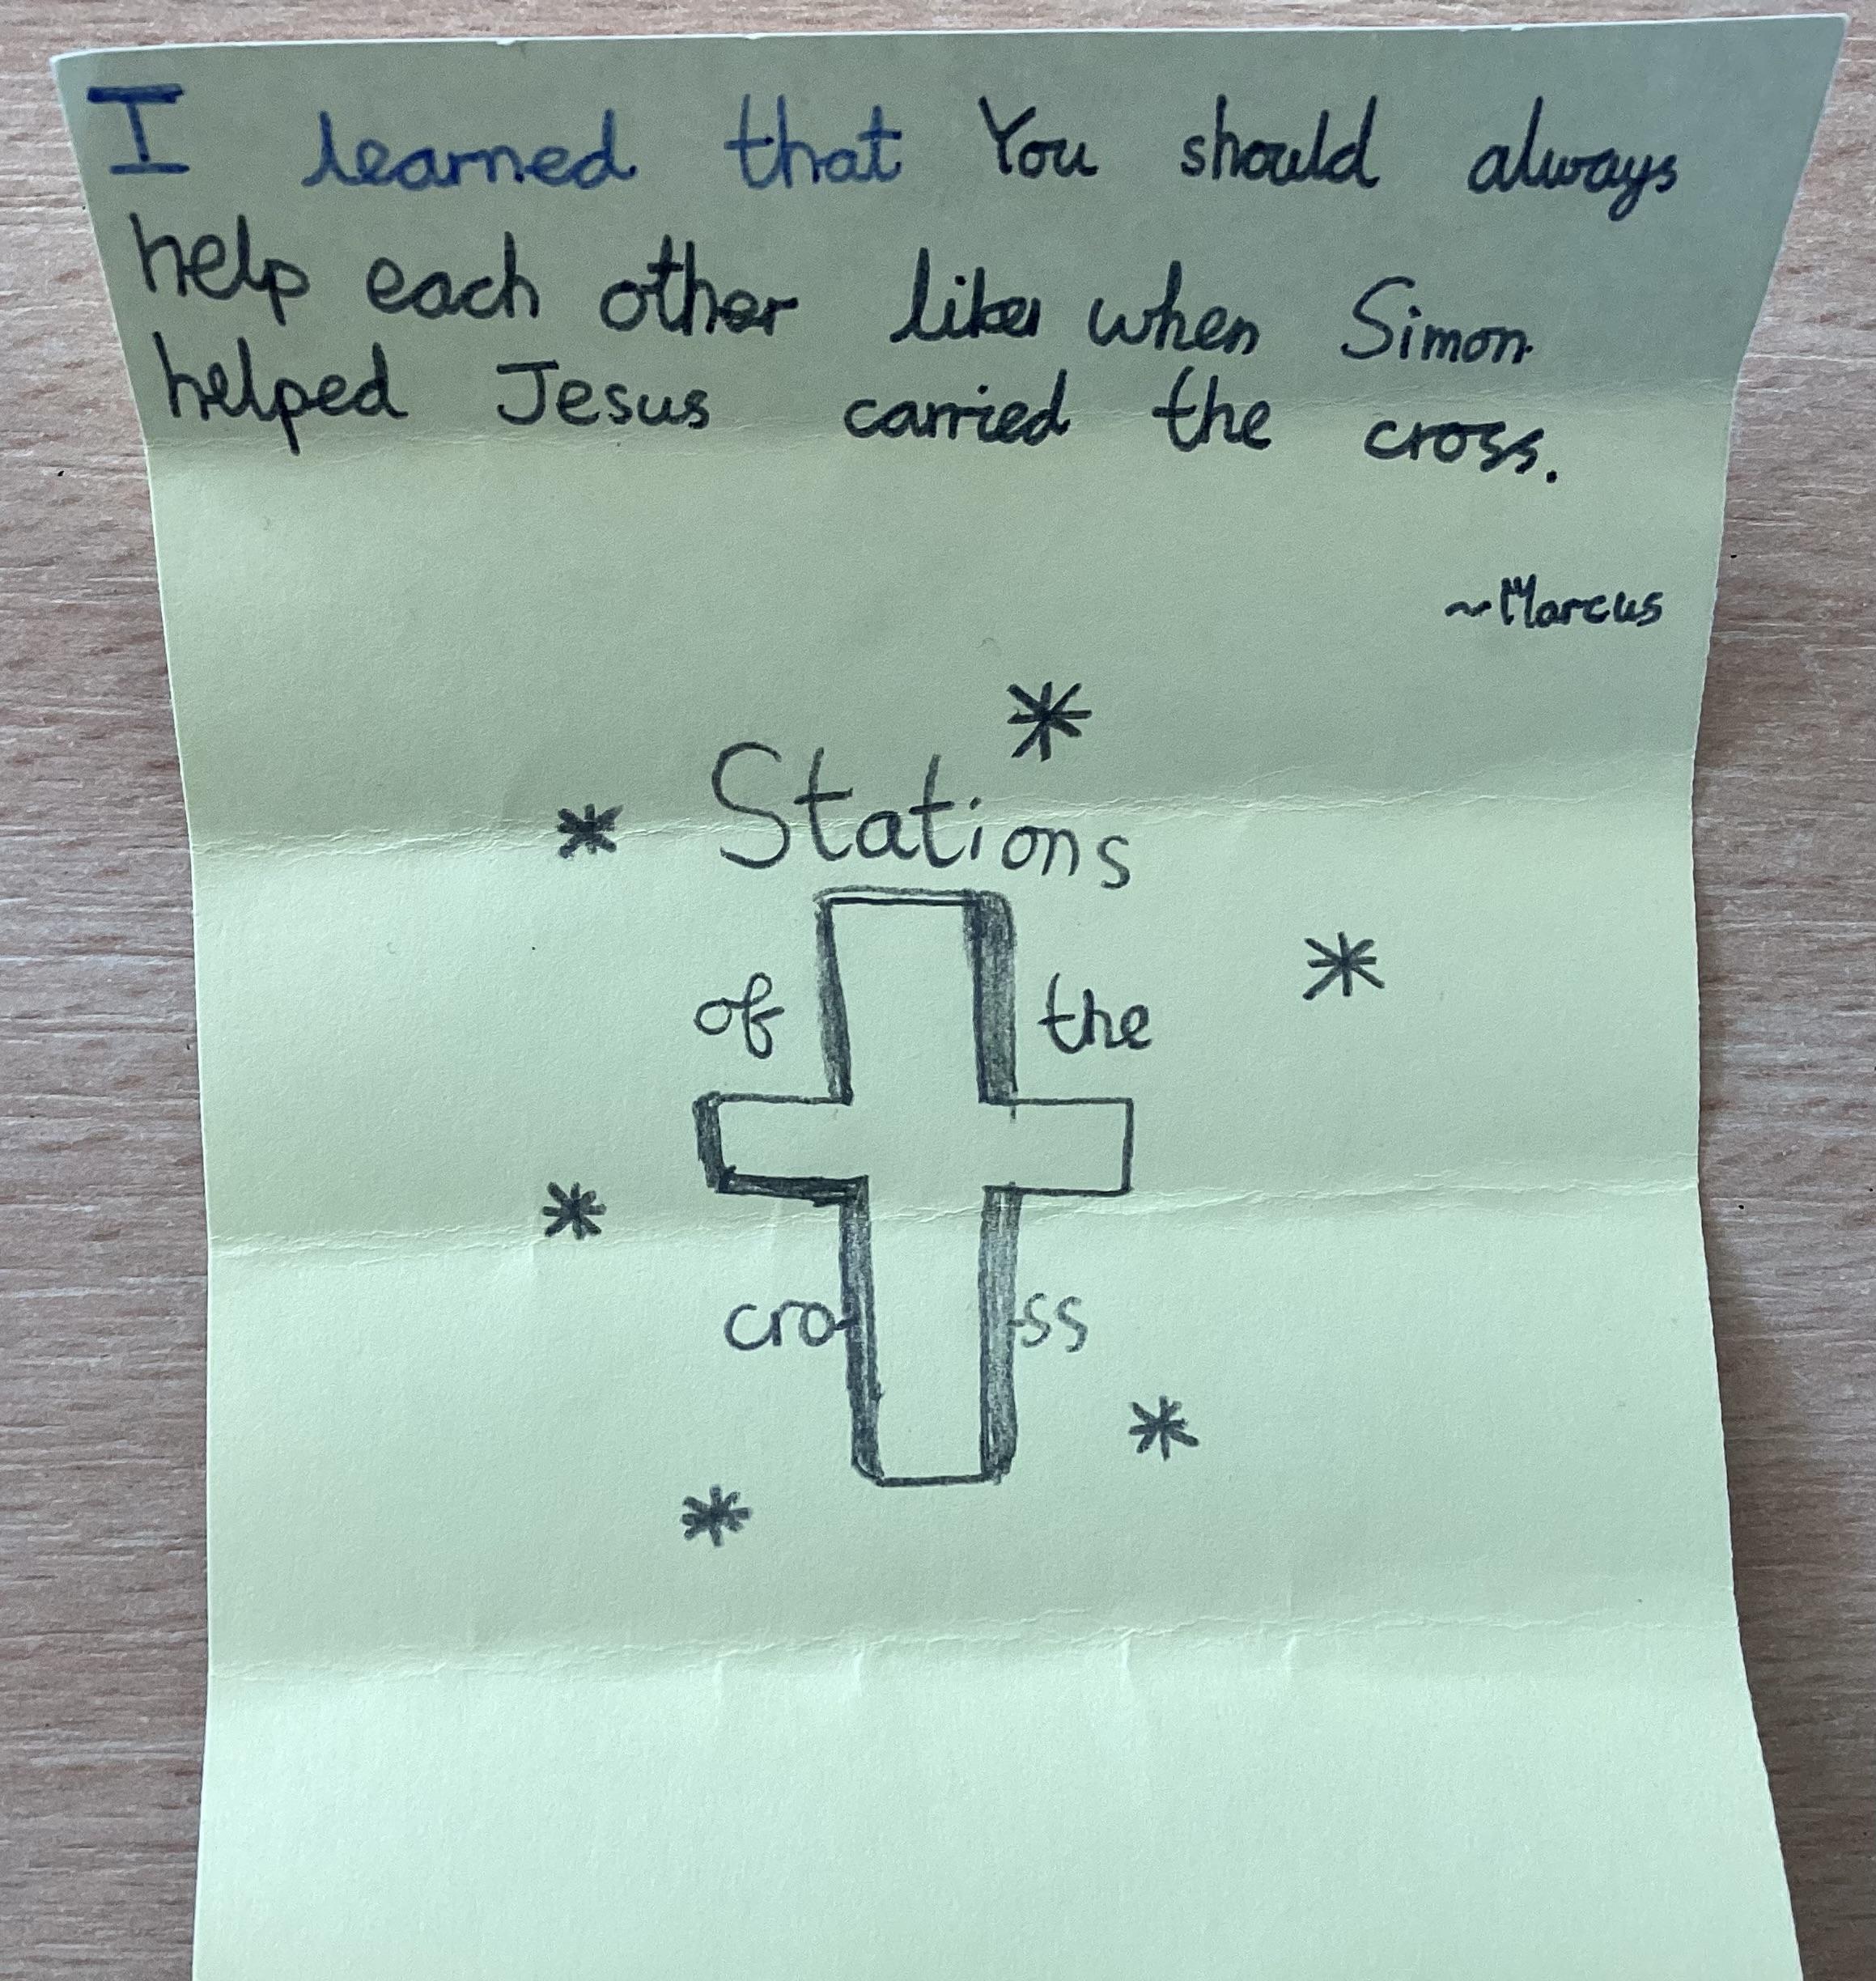 I learned that You should always
help each other like when Simon
helped Jesus carried the cross.
~Marcus
Stations
of the
cro- -ss